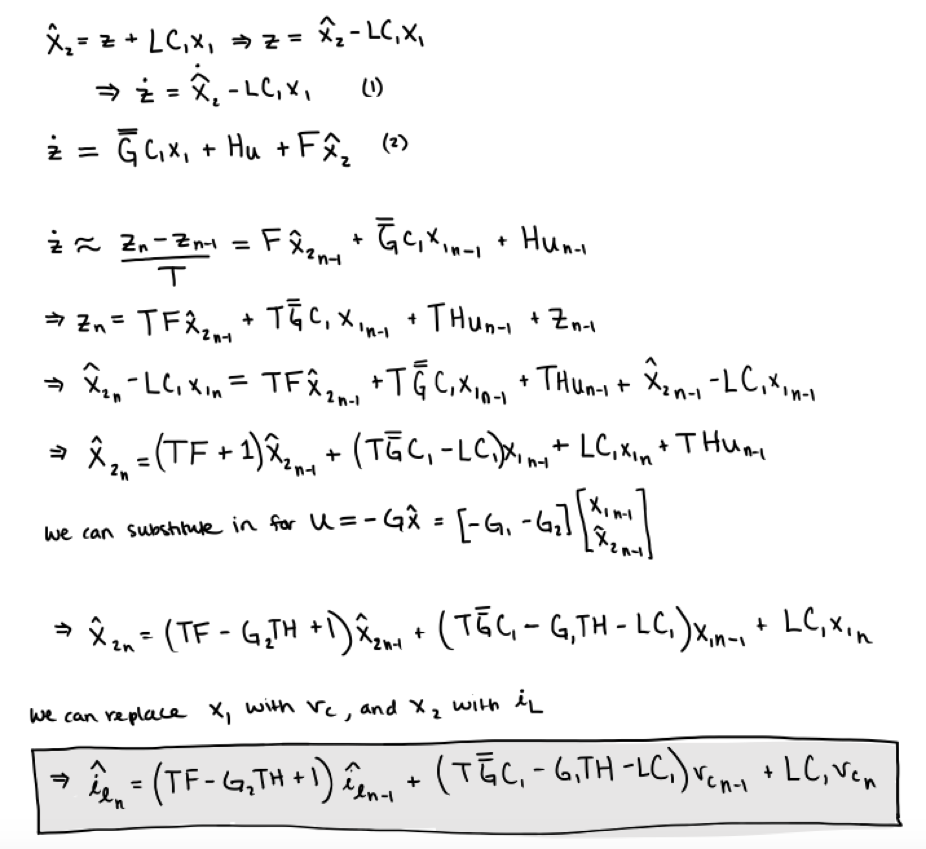 x̂₂ = z + LC₁x₁ ⇒ z = x̂₂ - LC₁x₁
⇒ ż = x̂̇₂ - LC₁x₁ (1)
ż = G̿C₁x₁ + Hu + Fx̂₂ (2)
ż ≈ (zₙ - zₙ₋₁)/T = Fx̂₂ₙ₋₁ + G̿C₁x₁ₙ₋₁ + Huₙ₋₁
⇒ zₙ = TFx̂₂ₙ₋₁ + TG̿C₁x₁ₙ₋₁ + THuₙ₋₁ + zₙ₋₁
⇒ x̂₂ₙ - LC₁x₁ₙ = TFx̂₂ₙ₋₁ + TG̿C₁x₁ₙ₋₁ + THuₙ₋₁ + x̂₂ₙ₋₁ - LC₁x₁ₙ₋₁
⇒ x̂₂ₙ = (TF + 1)x̂₂ₙ₋₁ + (TG̿C₁ - LC₁)x₁ₙ₋₁ + LC₁x₁ₙ + THuₙ₋₁
we can substitute in for u = -Gx̂ = [-G₁ -G₂][x₁ₙ₋₁ x̂₂ₙ₋₁]
⇒ x̂₂ₙ = (TF - G₂TH + 1)x̂₂ₙ₋₁ + (TG̿C₁ - G₁TH - LC₁)x₁ₙ₋₁ + LC₁x₁ₙ
we can replace x₁ with vc, and x₂ with iL
⇒ îℓₙ = (TF - G₂TH + 1)îℓₙ₋₁ + (TG̿C₁ - G₁TH - LC₁)vcₙ₋₁ + LC₁vcₙ